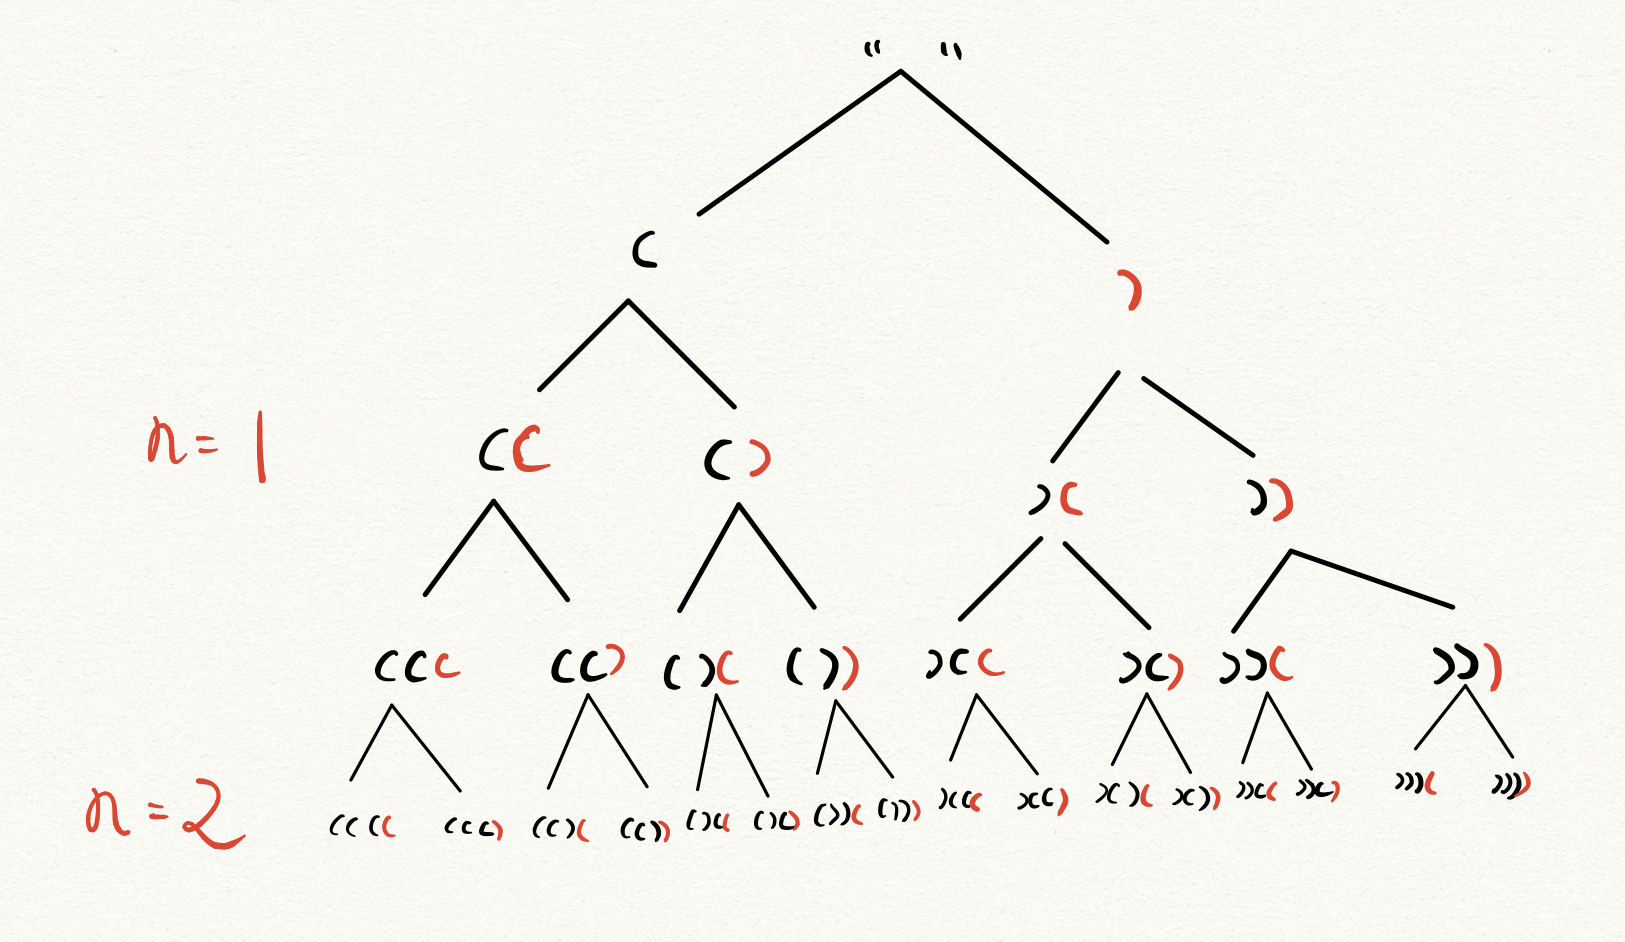 “ ”
(
)
n = 1
(( () )( ))
((( (() ()( ()) )(( )() ))( )))
n = 2
(((( ((() (()( (()) ()(( ()() ())( ())) )((( )(() )()( )()) ))(( ))() )))( ))))